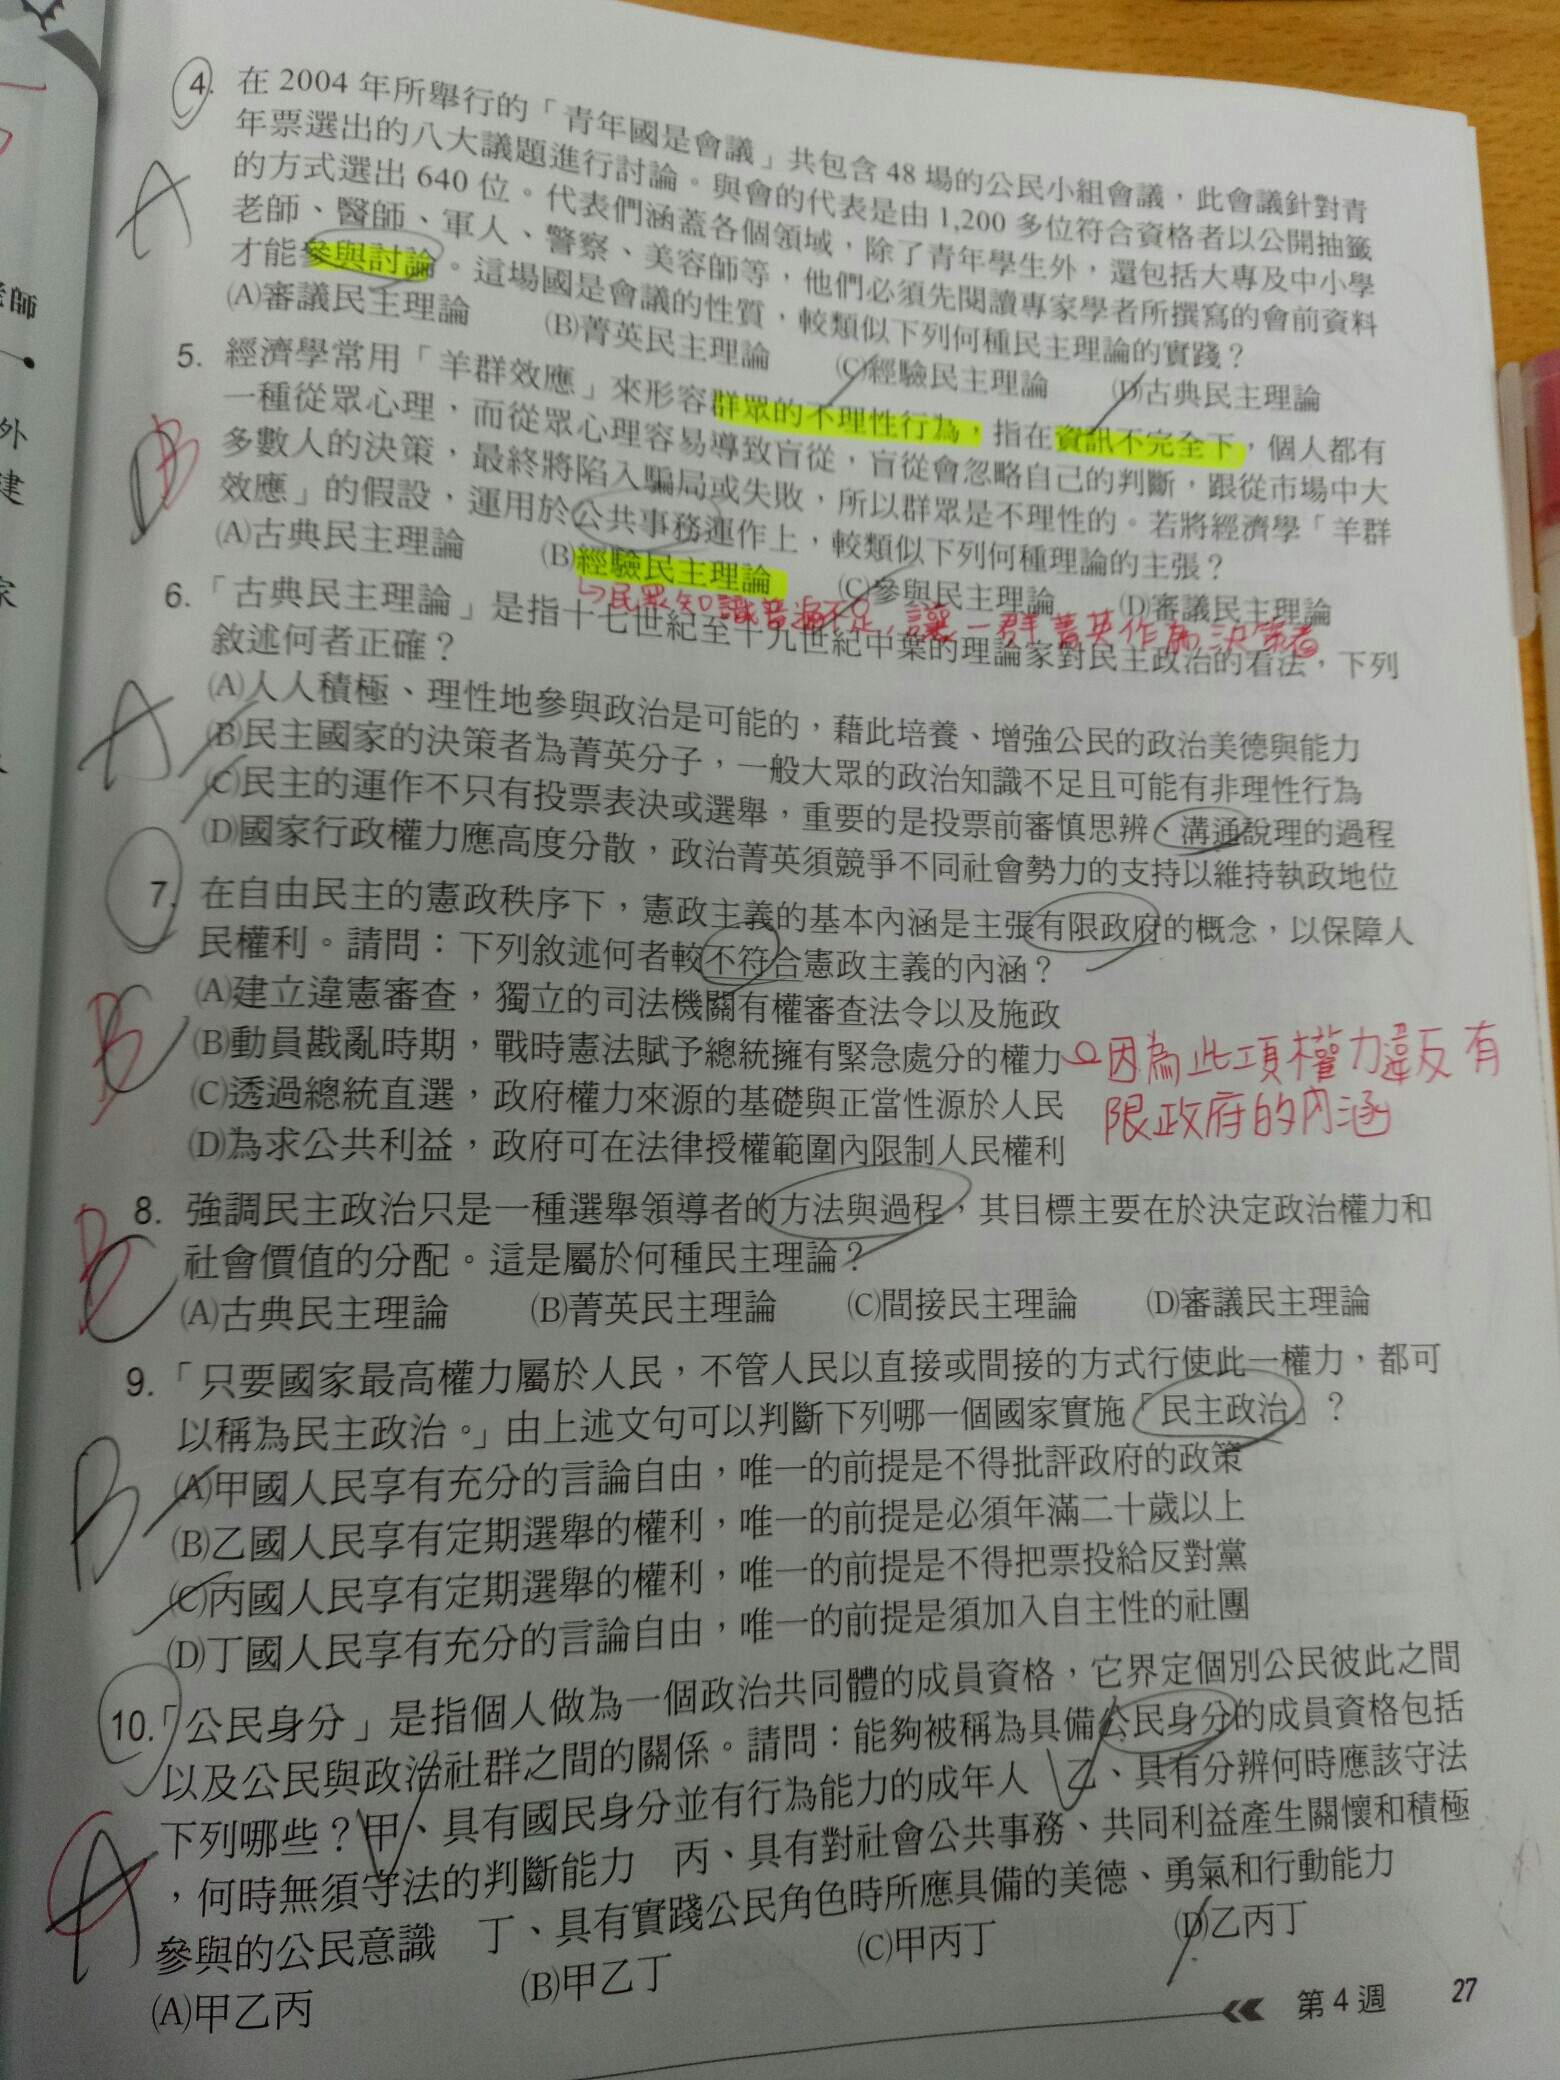 4. 在 2004 年所舉行的「青年國是會議」共包含 48 場的公民小組會議，此會議針對青
年票選出的八大議題進行討論。與會的代表是由 1,200 多位符合資格者以公開抽籤
的方式選出 640 位。代表們涵蓋各個領域，除了青年學生外，還包括大專及中小學
老師、醫師、軍人、警察、美容師等，他們必須先閱讀專家學者所撰寫的會前資料
才能參與討論。這場國是會議的性質，較類似下列何種民主理論的實踐？
A
(A)審議民主理論 (B)菁英民主理論 (C)經驗民主理論 (D)古典民主理論
5. 經濟學常用「羊群效應」來形容群眾的不理性行為，指在資訊不完全下，個人都有
一種從眾心理，而從眾心理容易導致盲從，盲從會忽略自己的判斷，跟從市場中大
多數人的決策，最終將陷入騙局或失敗，所以群眾是不理性的。若將經濟學「羊群
效應」的假設，運用於公共事務運作上，較類似下列何種理論的主張？
B
(A)古典民主理論 (B)經驗民主理論 (C)參與民主理論 (D)審議民主理論
民眾知識普遍不足，讓一群菁英作為決策者
6. 「古典民主理論」是指十七世紀至十九世紀中葉的理論家對民主政治的看法，下列
敘述何者正確？
A
(A)人人積極、理性地參與政治是可能的，藉此培養、增強公民的政治美德與能力
(B)民主國家的決策者為菁英分子，一般大眾的政治知識不足且可能有非理性行為
(C)民主的運作不只有投票表決或選舉，重要的是投票前審慎思辨、溝通說理的過程
(D)國家行政權力應高度分散，政治菁英須競爭不同社會勢力的支持以維持執政地位
7. 在自由民主的憲政秩序下，憲政主義的基本內涵是主張有限政府的概念，以保障人
民權利。請問：下列敘述何者較不符合憲政主義的內涵？
B
(A)建立違憲審查，獨立的司法機關有權審查法令以及施政
(B)動員戡亂時期，戰時憲法賦予總統擁有緊急處分的權力
因為此項權力違反有
限政府的內涵
(C)透過總統直選，政府權力來源的基礎與正當性源於人民
(D)為求公共利益，政府可在法律授權範圍內限制人民權利
8. 強調民主政治只是一種選舉領導者的方法與過程，其目標主要在於決定政治權力和
社會價值的分配。這是屬於何種民主理論？
B
(A)古典民主理論 (B)菁英民主理論 (C)間接民主理論 (D)審議民主理論
9. 「只要國家最高權力屬於人民，不管人民以直接或間接的方式行使此一權力，都可
以稱為民主政治。」由上述文句可以判斷下列哪一個國家實施「民主政治」？
B
(A)甲國人民享有充分的言論自由，唯一的前提是不得批評政府的政策
(B)乙國人民享有定期選舉的權利，唯一的前提是必須年滿二十歲以上
(C)丙國人民享有定期選舉的權利，唯一的前提是不得把票投給反對黨
(D)丁國人民享有充分的言論自由，唯一的前提是須加入自主性的社團
10. 「公民身分」是指個人做為一個政治共同體的成員資格，它界定個別公民彼此之間
以及公民與政治社群之間的關係。請問：能夠被稱為具備公民身分的成員資格包括
下列哪些？甲、具有國民身分並有行為能力的成年人 乙、具有分辨何時應該守法
，何時無須守法的判斷能力 丙、具有對社會公共事務、共同利益產生關懷和積極
參與的公民意識 丁、具有實踐公民角色時所應具備的美德、勇氣和行動能力
A
(A)甲乙丙 (B)甲乙丁 (C)甲丙丁 (D)乙丙丁
第 4 週 27
老師
外
建
家